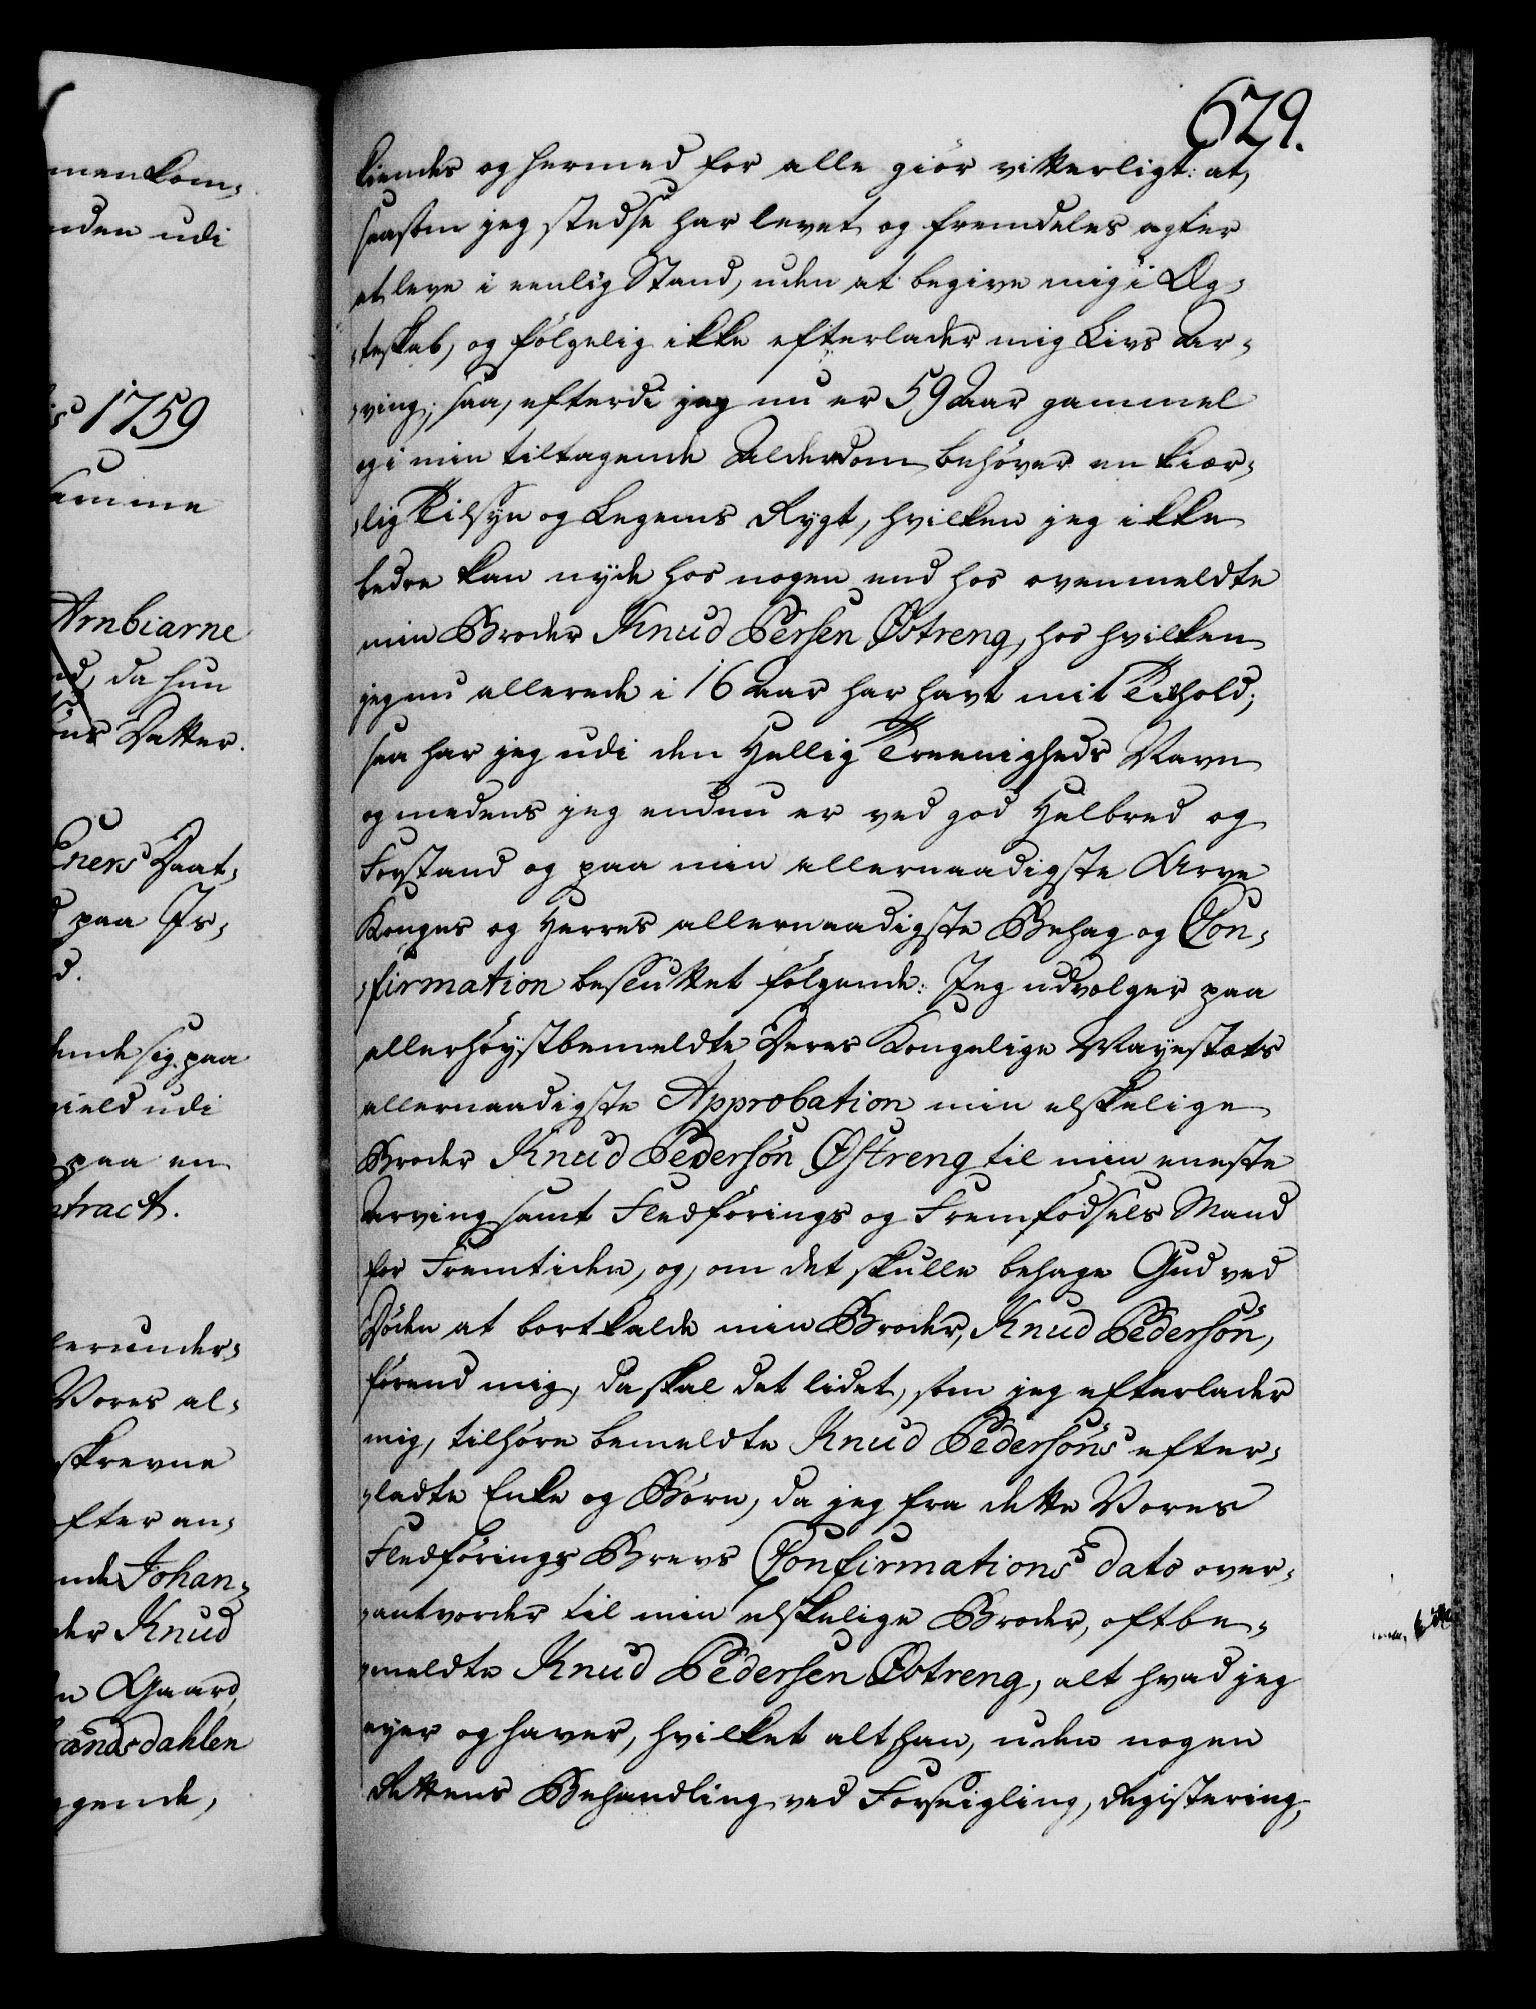 629.
kiendes og hermed for alle giör vitterligt: at,
saasom jeg stedse har levet og fremdeles agter
at leve i eenlig Stand, uden at begive mig i Æg-
teskab, og fölgelig ikke efterlader mig Livs Ar-
ving; saa, efterdi jeg nu er 59 Aar gammel
og i min tiltagende Alderdom behöver en kiær-
lig Tilsyn og Legems Rygt, hvilken jeg ikke
bedre kan nyde hos nogen end hos ovenmeldte
min Broder Knud Persen Östreng, hos hvilken
jeg nu allerede i 16 Aar har havt mit Tilhold;
saa har jeg udi den Hellig Treenigheds Navn
og medens jeg endnu er ved god Helbred og
Forstand og paa min allernaadigste Arve
Konges og Herres allernaadigste Behag og Con-
firmation besluttet fölgende: Jeg udvælger paa
allerhöystbemeldte Deres Kongelige Mayestæts
allernaadigste Approbation min elskelige
Broder Knud Pedersön Östreng til min eneste
Arving samt Fledförings og Fremfödsels Mand
for Fremtiden, og, om det skulle behage Gud ved
Döden at bortkalde min Broder, Knud Pedersön,
förend mig, da skal det lidet, som jeg efterlader
mig, tilhöre bemeldte Knud Pedersöns efter-
ladte Enke og Börn, da jeg fra dette Vores
Fledförings Brevs Confirmations dato over-
antvorder til min elskelige Broder, oftbe-
meldte Knud Pedersen Östreng, alt hvad jeg
eyer og haver, hvilket alt han, uden nogen
Rettens Behandling ved Forseigling, Registering,
menkom-
nden udi
1759
samme
Arnbiarne
da hun
Datter.
Eners Daat-
paa Is-
d.
ende sig paa
field udi
paa en
ntract.
herunder-
Vores al-
skrevne
efter an-
nde Johan-
der Knud
n Gaard,
randsdahlen
gende,